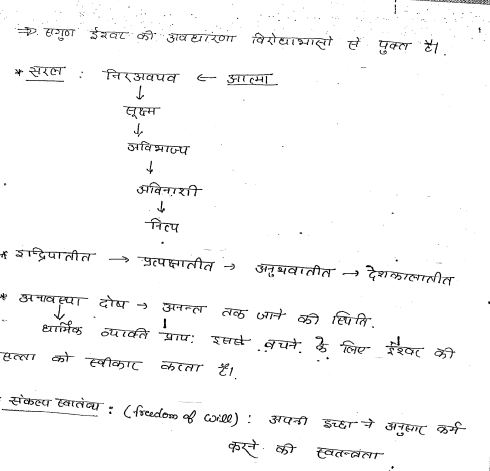 ⇒ सगुण ईश्वर की अवधारणा विरोधाभासों से युक्त है।
* सरल : निरअवयव ← आत्मा
↓
सूक्ष्म
↓
अविभाज्य
↓
अविनाशी
↓
नित्य
* इन्द्रियातीत → प्रत्यक्षातीत → अनुभवातीत → देशकालातीत
* अनावस्था दोष → अनन्त तक जाने की स्थिति.
↓
धार्मिक व्यक्ति प्राय: इससे बचने के लिए ईश्वर की
सत्ता को स्वीकार करता है।
- संकल्प स्वातंत्र्य : (freedom of will) : अपनी इच्छा ने अनुसार कर्म
करने की स्वतन्त्रता